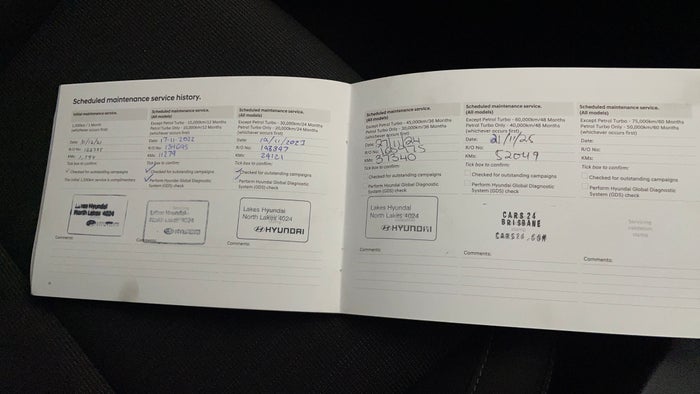 Scheduled maintenance service history.
Initial maintenance service.
1,500km / 1 Month
(whichever occurs first)
Date:
R/O No:
KMs:
Tick box to confirm:
Checked for outstanding campaigns
The initial 1,500km service is complimentary
Lakes Hyundai
North Lakes 4024
Comments:
Scheduled maintenance service.
(All models)
Except Petrol Turbo - 15,000km/12 Months
Petrol Turbo Only - 10,000km/12 Months
(whichever occurs first)
Date: 17-11-2022
R/O No:
KMs: 11279
Tick box to confirm:
Checked for outstanding campaigns
Perform Hyundai Global Diagnostic
System (GDS) check
Lakes Hyundai
North Lakes 4024
HYUNDAI
Comments:
Scheduled maintenance service.
(All models)
Except Petrol Turbo - 30,000km/24 Months
Petrol Turbo Only - 20,000km/24 Months
(whichever occurs first)
Date: 10/11/2023
R/O No:
KMs: 24121
Tick box to confirm:
Checked for outstanding campaigns
Perform Hyundai Global Diagnostic
System (GDS) check
Lakes Hyundai
North Lakes 4024
HYUNDAI
Comments:
Scheduled maintenance service.
(All models)
Except Petrol Turbo - 45,000km/36 Months
Petrol Turbo Only - 30,000km/36 Months
(whichever occurs first)
Date: 27/11/24
R/O No:
KMs: 37340
Tick box to confirm:
Checked for outstanding campaigns
Perform Hyundai Global Diagnostic
System (GDS) check
Lakes Hyundai
North Lakes 4024
HYUNDAI
Comments:
Scheduled maintenance service.
(All models)
Except Petrol Turbo - 60,000km/48 Months
Petrol Turbo Only - 40,000km/48 Months
(whichever occurs first)
Date: 21/11/25
R/O No:
KMs: 52049
Tick box to confirm:
Checked for outstanding campaigns
Perform Hyundai Global Diagnostic
System (GDS) check
CARS24
BRISBANE
Comments:
Scheduled maintenance service.
(All models)
Except Petrol Turbo - 75,000km/60 Months
Petrol Turbo Only - 50,000km/60 Months
(whichever occurs first)
Date:
R/O No:
KMs:
Tick box to confirm:
Checked for outstanding campaigns
Perform Hyundai Global Diagnostic
System (GDS) check
Servicing
validation
stamp
Comments: